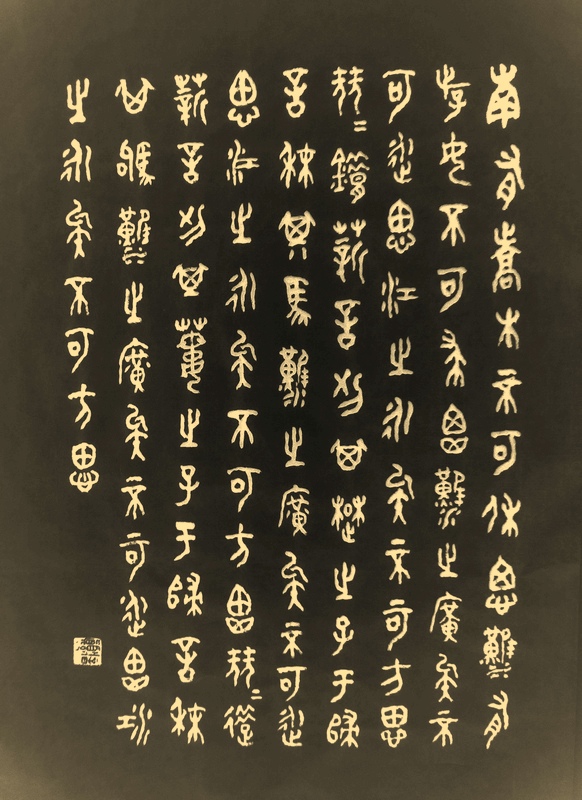 南有喬木不可休思漢有
游女不可求思漢之廣矣不
可泳思江之永矣不可方思
翹=錯薪言刈其楚之子于歸
言秣其馬漢之廣矣不可泳
思江之永矣不可方思翹=錯
薪言刈其蔞之子于歸言秣
其駒漢之廣矣不可泳思江
之永矣不可方思